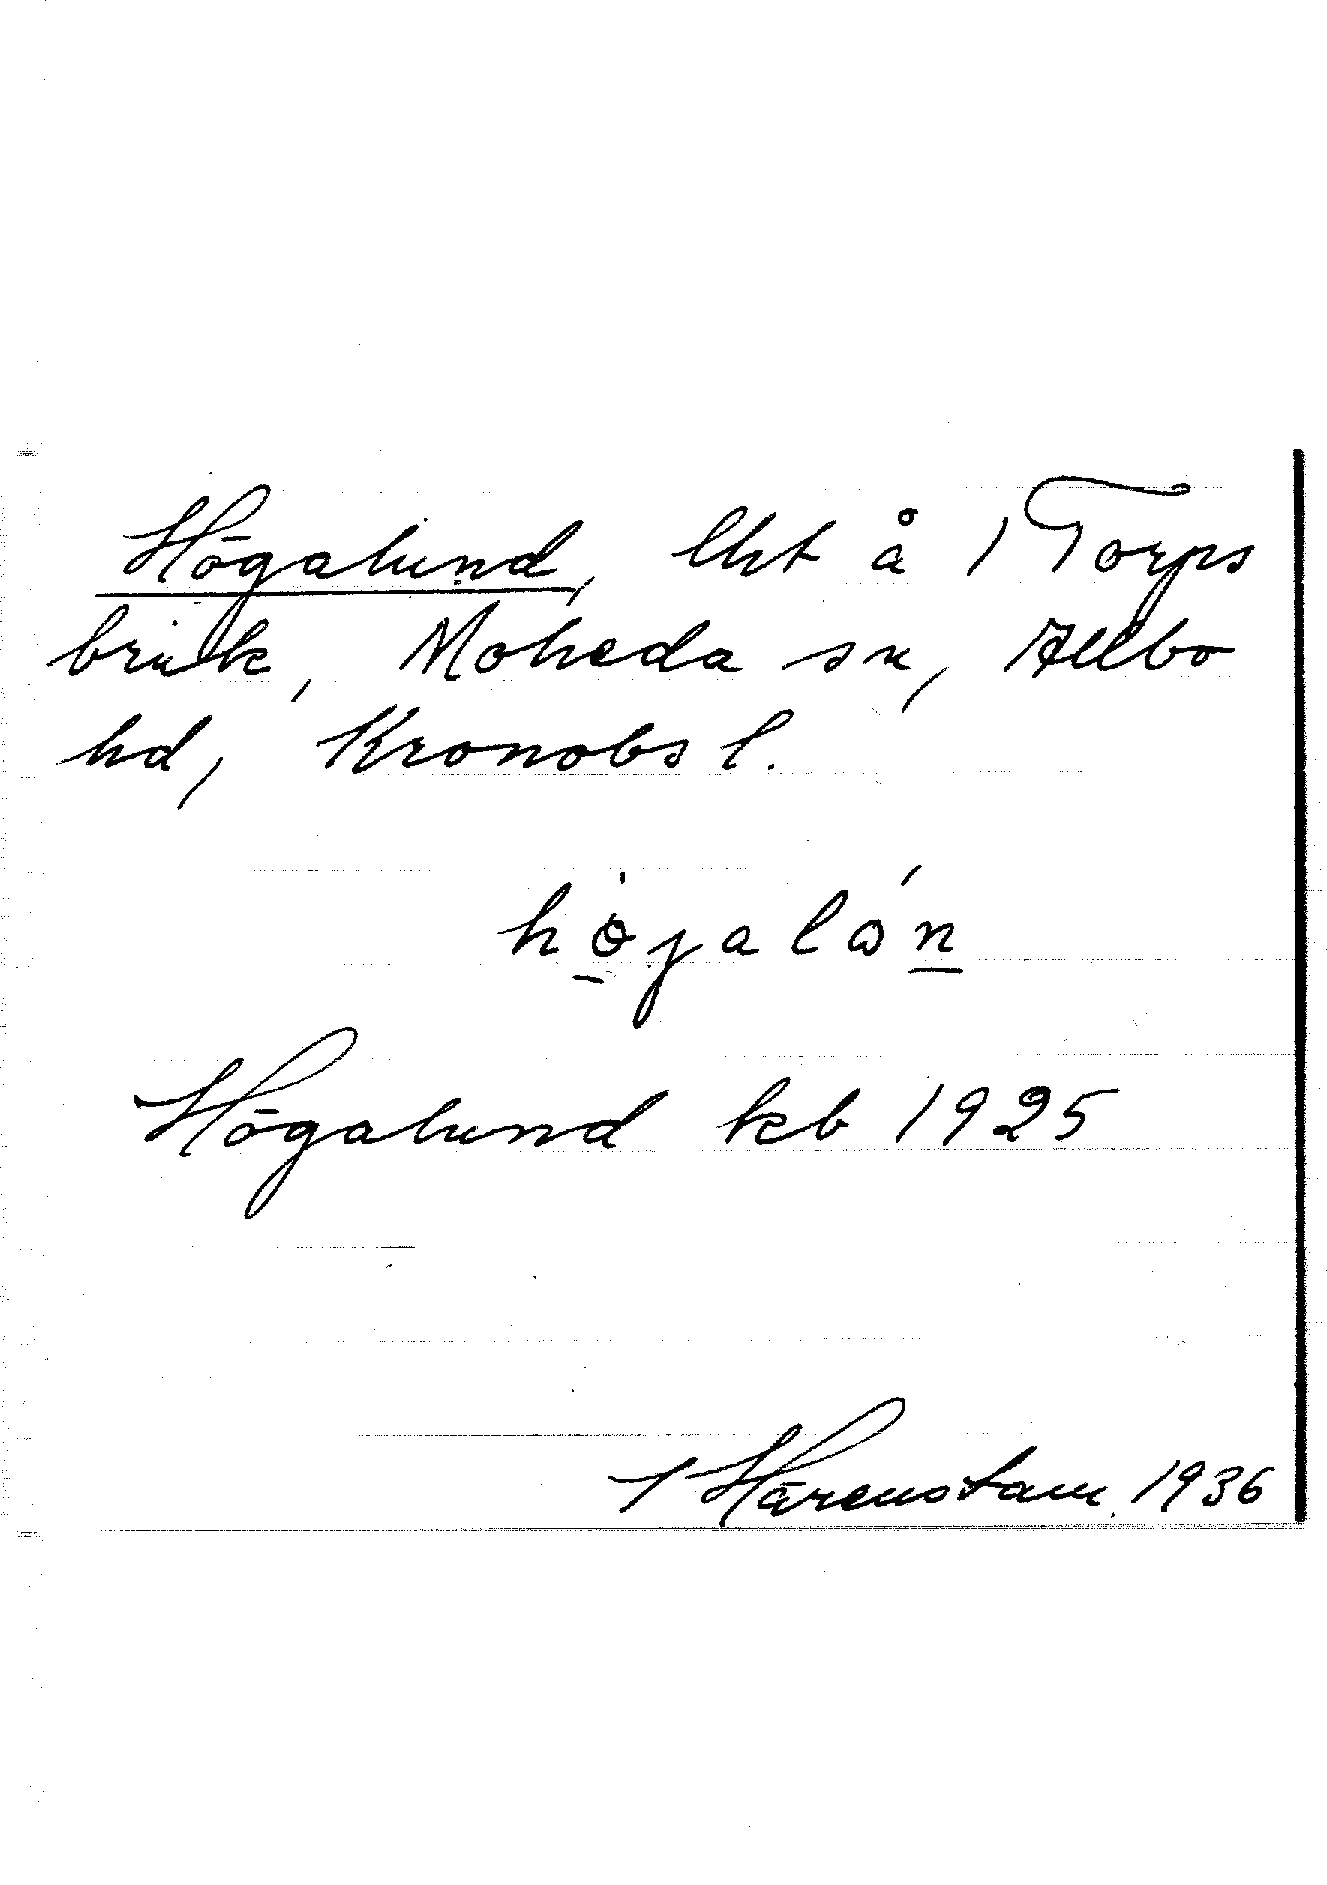 Högalund, lht å 1 Torps
bruk, Moheda sn, Allbo
hd, Kronobs l.
Högalund kb 1925
Härenstam 1936